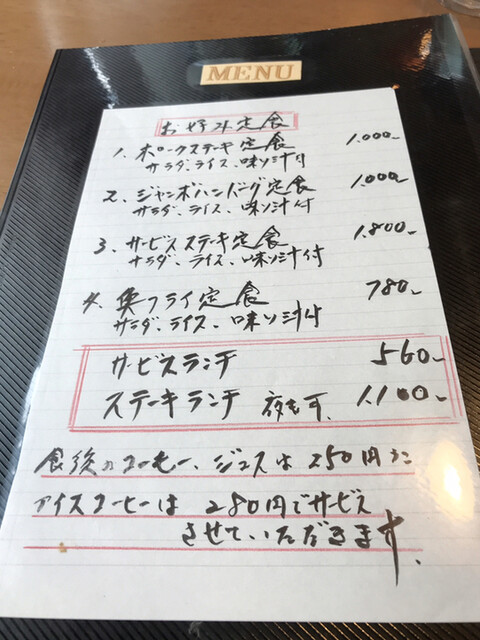 MENU
お好み定食
1. ポークステーキ定食 1.000-
サラダ、ライス、味ソ汁付
2. ジャンボハンバーグ定食 1.000-
サラダ、ライス、味ソ汁付
3. サービスステーキ定食 1.800-
サラダ、ライス、味ソ汁付
4. 魚フライ定食 780-
サラダ、ライス、味ソ汁付
サービスランチ 560-
ステーキランチ 夜も可. 1.100-
食後のコーヒー、ジュースは250円に
アイスコーヒーは280円でサービス
させていただきます.